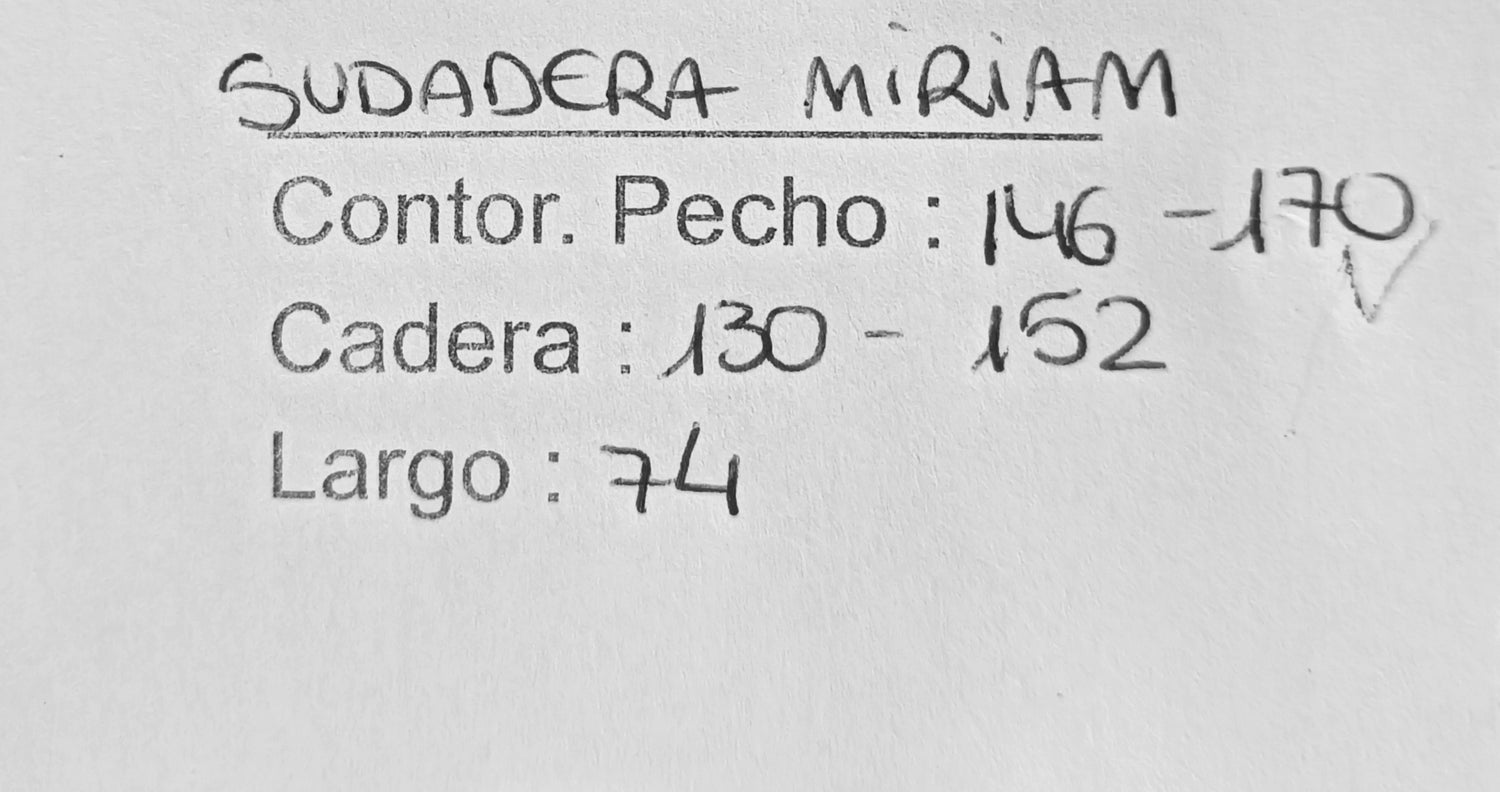 SUDADERA MiRiAM
Contor. Pecho : 146 - 170
Cadera : 130 - 152
Largo : 74